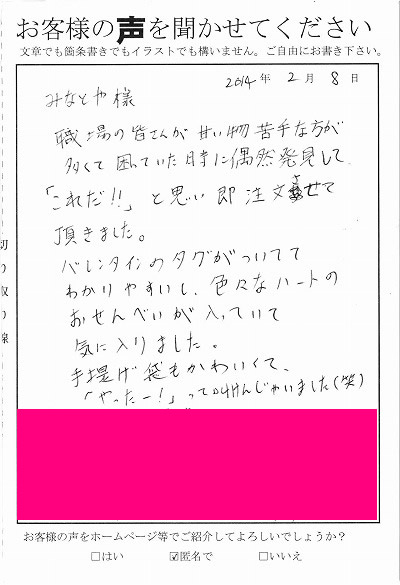 お客様の声を聞かせてください
文章でも箇条書きでもイラストでも構いません。ご自由にお書き下さい。
2014年 2月 8日
みなとや様
職場の皆さんが甘い物苦手な方が
多くて困っていた時に偶然発見して
「これだ!!」と思い即注文させて
頂きました。
バレンタインのタグがついてて
わかりやすいし、色々なハートの
おせんべいが入っていて
気に入りました。
手提げ袋もかわいくて、
「やったー!」って叫んじゃいました(笑)
切り取り線
お客様の声をホームページ等でご紹介してよろしいでしょうか?
□はい ☑匿名で □いいえ